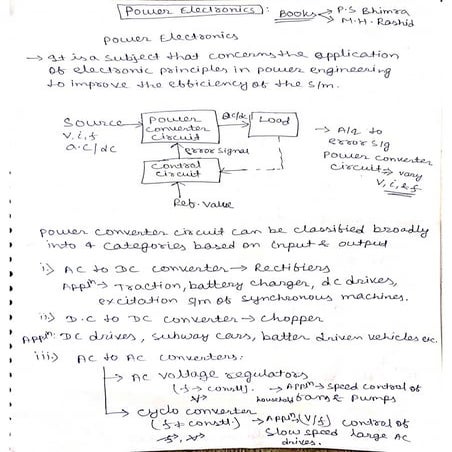 Power Electronics: Books → P.S Bhimra
→ M.H. Rashid
Power Electronics
→ It is a subject that concerns the application
of electronic principles in power engineering
to improve the efficiency of the s/m.
Source → Power Converter Circuit → ac/dc → Load
V, i, f
a.c/dc
error signal
Control Circuit
Ref. Value
→ A/q to
error sig
Power converter
circuit → vary
V, i, & f
Power converter circuit can be classified broadly
into 4 categories based on input & output
i) AC to DC converter → Rectifiers
Appⁿ → Traction, battery charger, dc drives,
excitation s/m of synchronous machines.
ii) D.C to DC converter → chopper
Appⁿ: DC drives, subway cars, batter driven vehicles etc.
iii) AC to AC converters:
→ AC voltage regulators
(f → const). → Appⁿ → speed control of
household fans & pumps
→ cyclo converter
(f ≠ const). → Appⁿ (V/f) control of
slow speed large AC
drives.